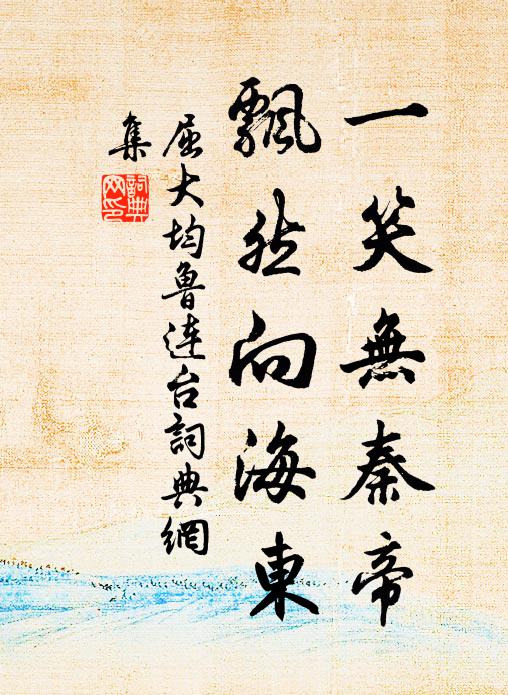 一笑無秦帝
飄然向海東
屈大均魯連台詞典網
集
詞典
网印